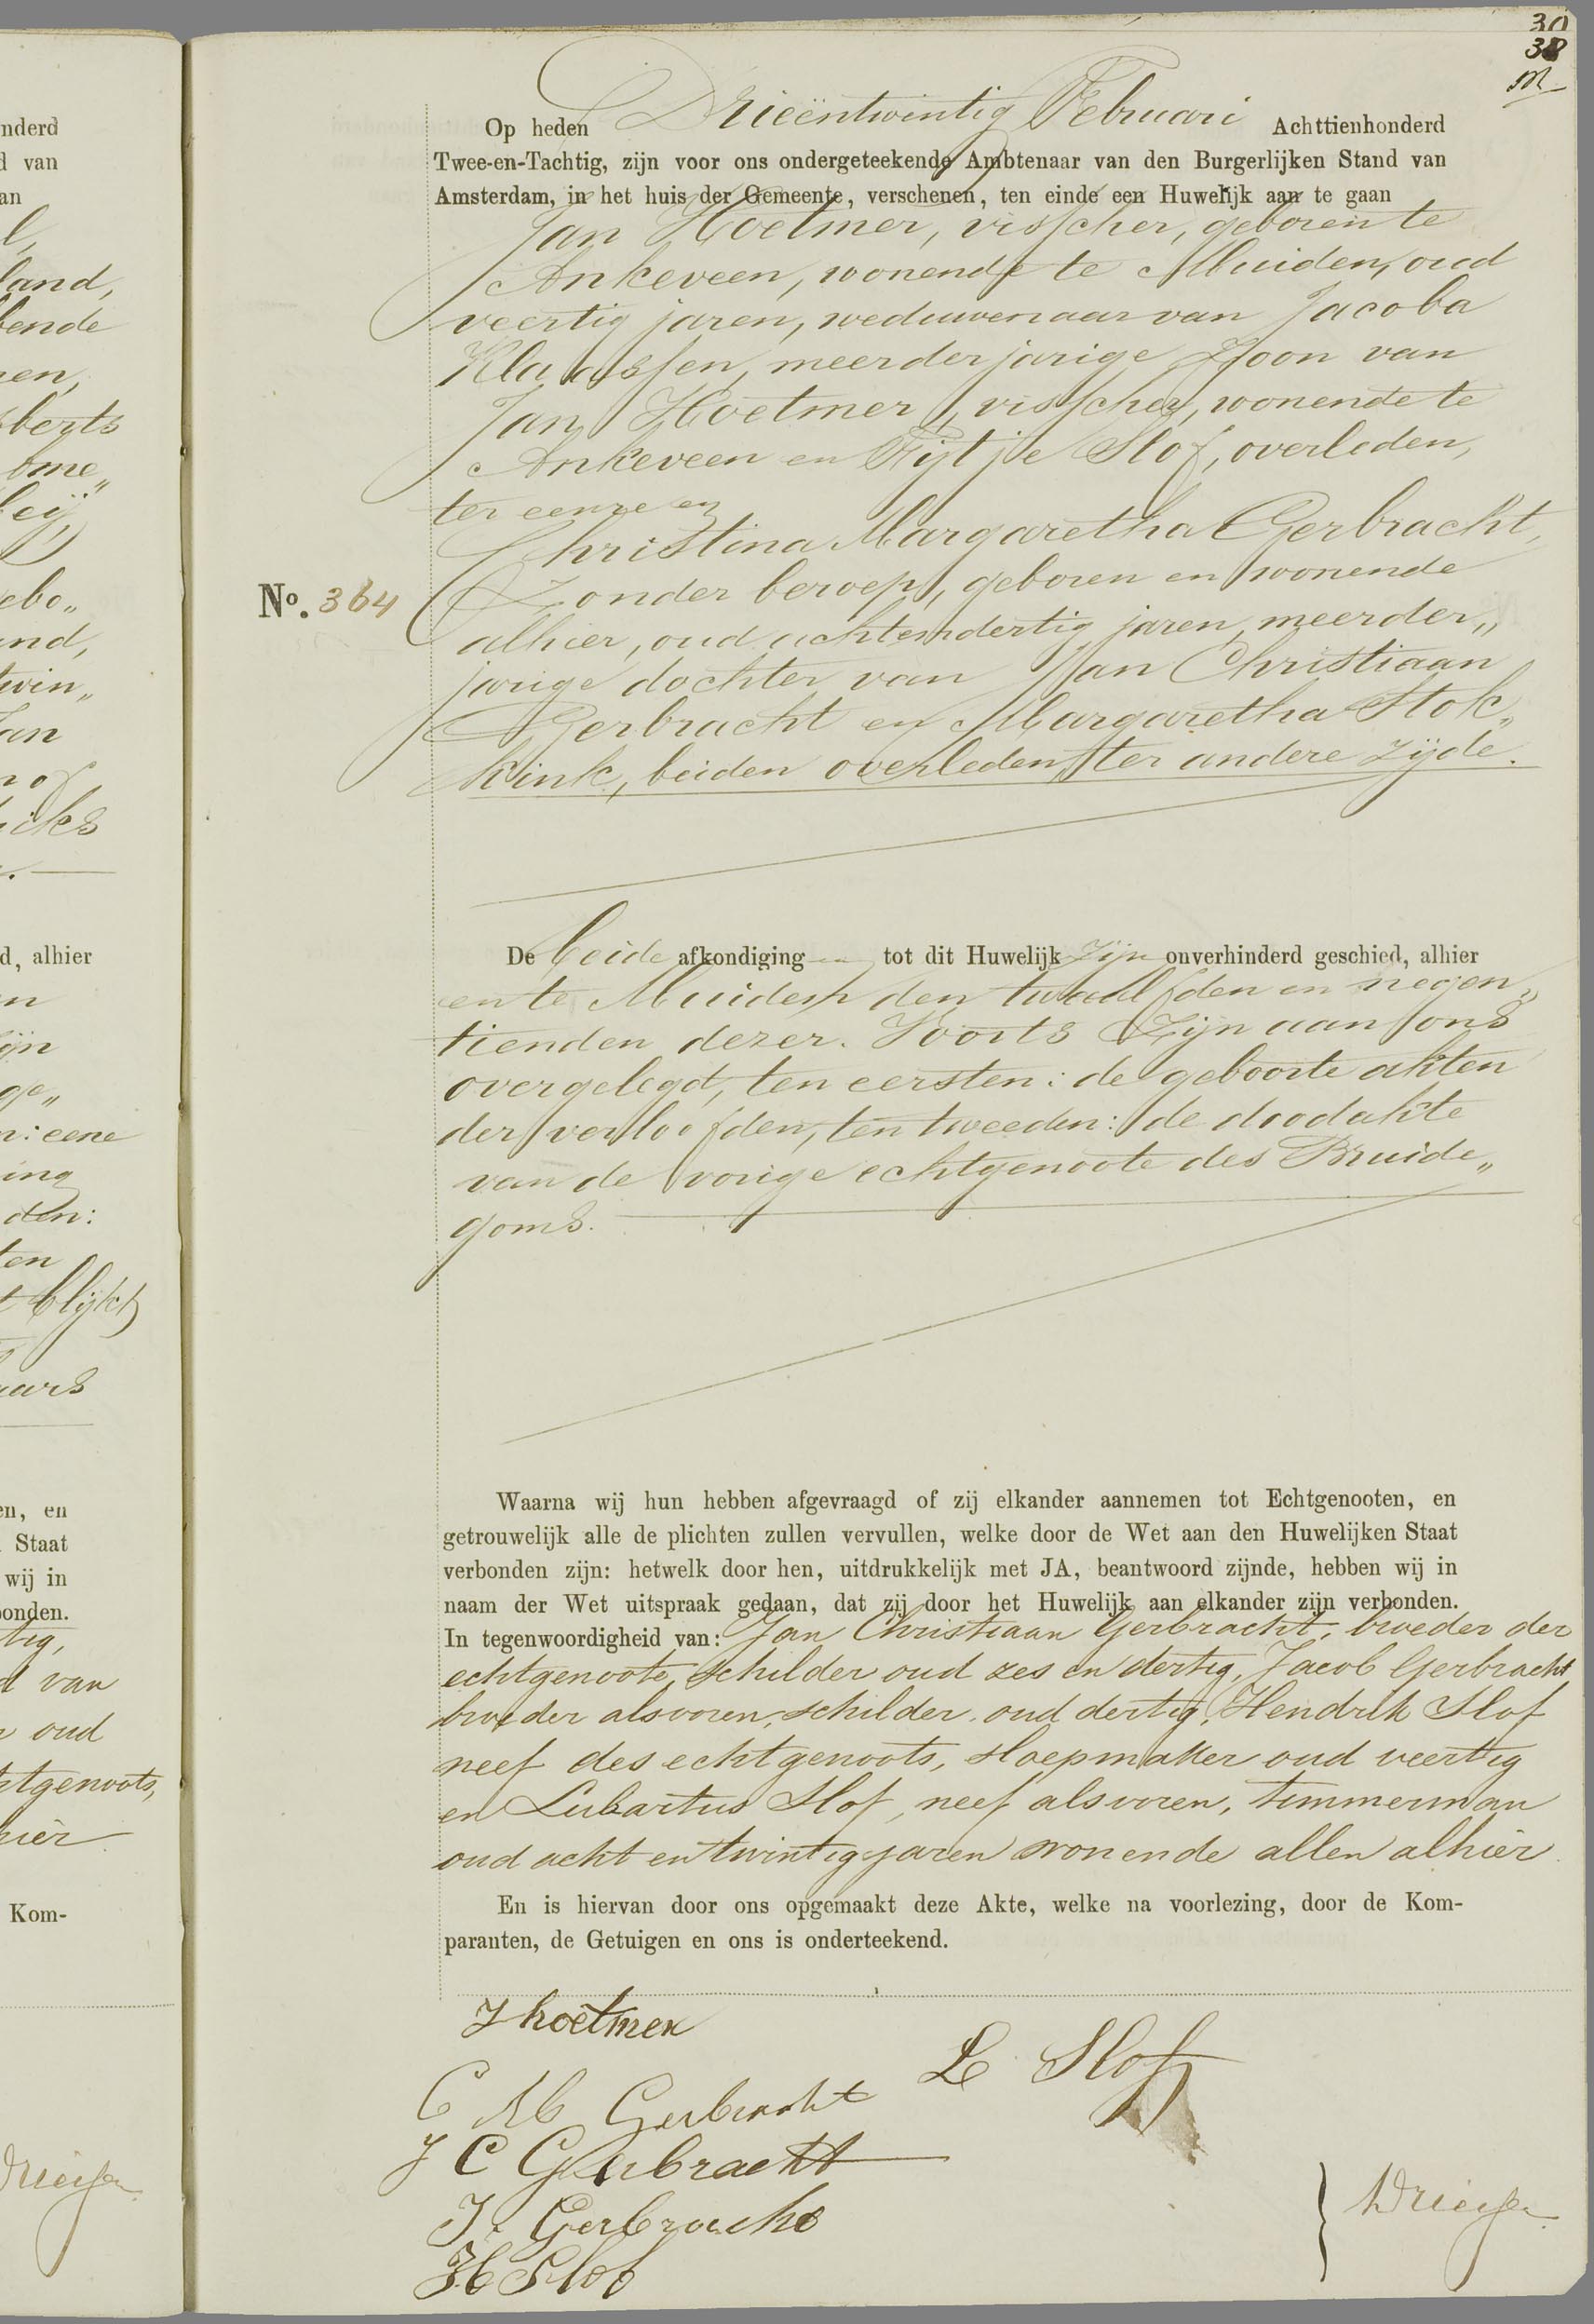 30
38
M
nderd
d van
an
l,
land,
bende
nen,
sberts
ome„
leij,
ebo„
and,
twin„
Jan
icks
d, alhier
en
ijn
ge„
n: eene
ing
den:
ten
t blijkt
aars
en, en
Staat
wij in
bonden.
tig,
d van
n oud
htgenoots,
hier
Kom-
Op heden Drieëntwintig Februari Achttienhonderd
Twee-en-Tachtig, zijn voor ons ondergeteekende Ambtenaar van den Burgerlijken Stand van
Amsterdam, in het huis der Gemeente, verschenen, ten einde een Huwelijk aan te gaan
Jan Hoetmer, visscher, geboren te
Ankeveen, wonende te Muiden, oud
veertig jaren, weduwenaar van Jacoba
Klaassen, meerderjarige Zoon van
Jan Hoetmer, visscher, wonende te
Ankeveen en Fijtje Slof, overleden,
ter eenre en
Christina Margaretha Gerbracht,
No. 364
Zonder beroep, geboren en wonende
alhier, oud achtendertig jaren, meerder„
jarige dochter van Jan Christiaan
Gerbracht en Margaretha Stok„
kink, beiden overleden, ter andere zijde.
De beide afkondiging en tot dit Huwelijk zijn onverhinderd geschied, alhier
en te Muiden den twaalfden en negen„
tienden dezer. Voorts Zijn aan ons
overgelegd, ten eersten: de geboorte akten
der verloofden, ten tweeden: de doodakte
van de vorige echtgenoote des Bruide„
goms.
Waarna wij hun hebben afgevraagd of zij elkander aannemen tot Echtgenooten, en
getrouwelijk alle de plichten zullen vervullen, welke door de Wet aan den Huwelijken Staat
verbonden zijn: hetwelk door hen, uitdrukkelijk met JA, beantwoord zijnde, hebben wij in
naam der Wet uitspraak gedaan, dat zij door het Huwelijk aan elkander zijn verbonden.
In tegenwoordigheid van: Jan Christiaan Gerbracht, broeder der
echtgenoote, schilder oud zes en dertig, Jacob Gerbracht
broeder alsvoren, schilder, oud dertig, Hendrik Slof
neef des echtgenoots, sloepmaker oud veertig
en Lubartus Slof, neef alsvoren, timmerman
oud acht en twintig jaren wonende allen alhier
En is hiervan door ons opgemaakt deze Akte, welke na voorlezing, door de Kom-
paranten, de Getuigen en ons is onderteekend.
J hoetmer
C M Gerbracht
L Slof
J C Gerbracht
J. Gerbracht
H Slof